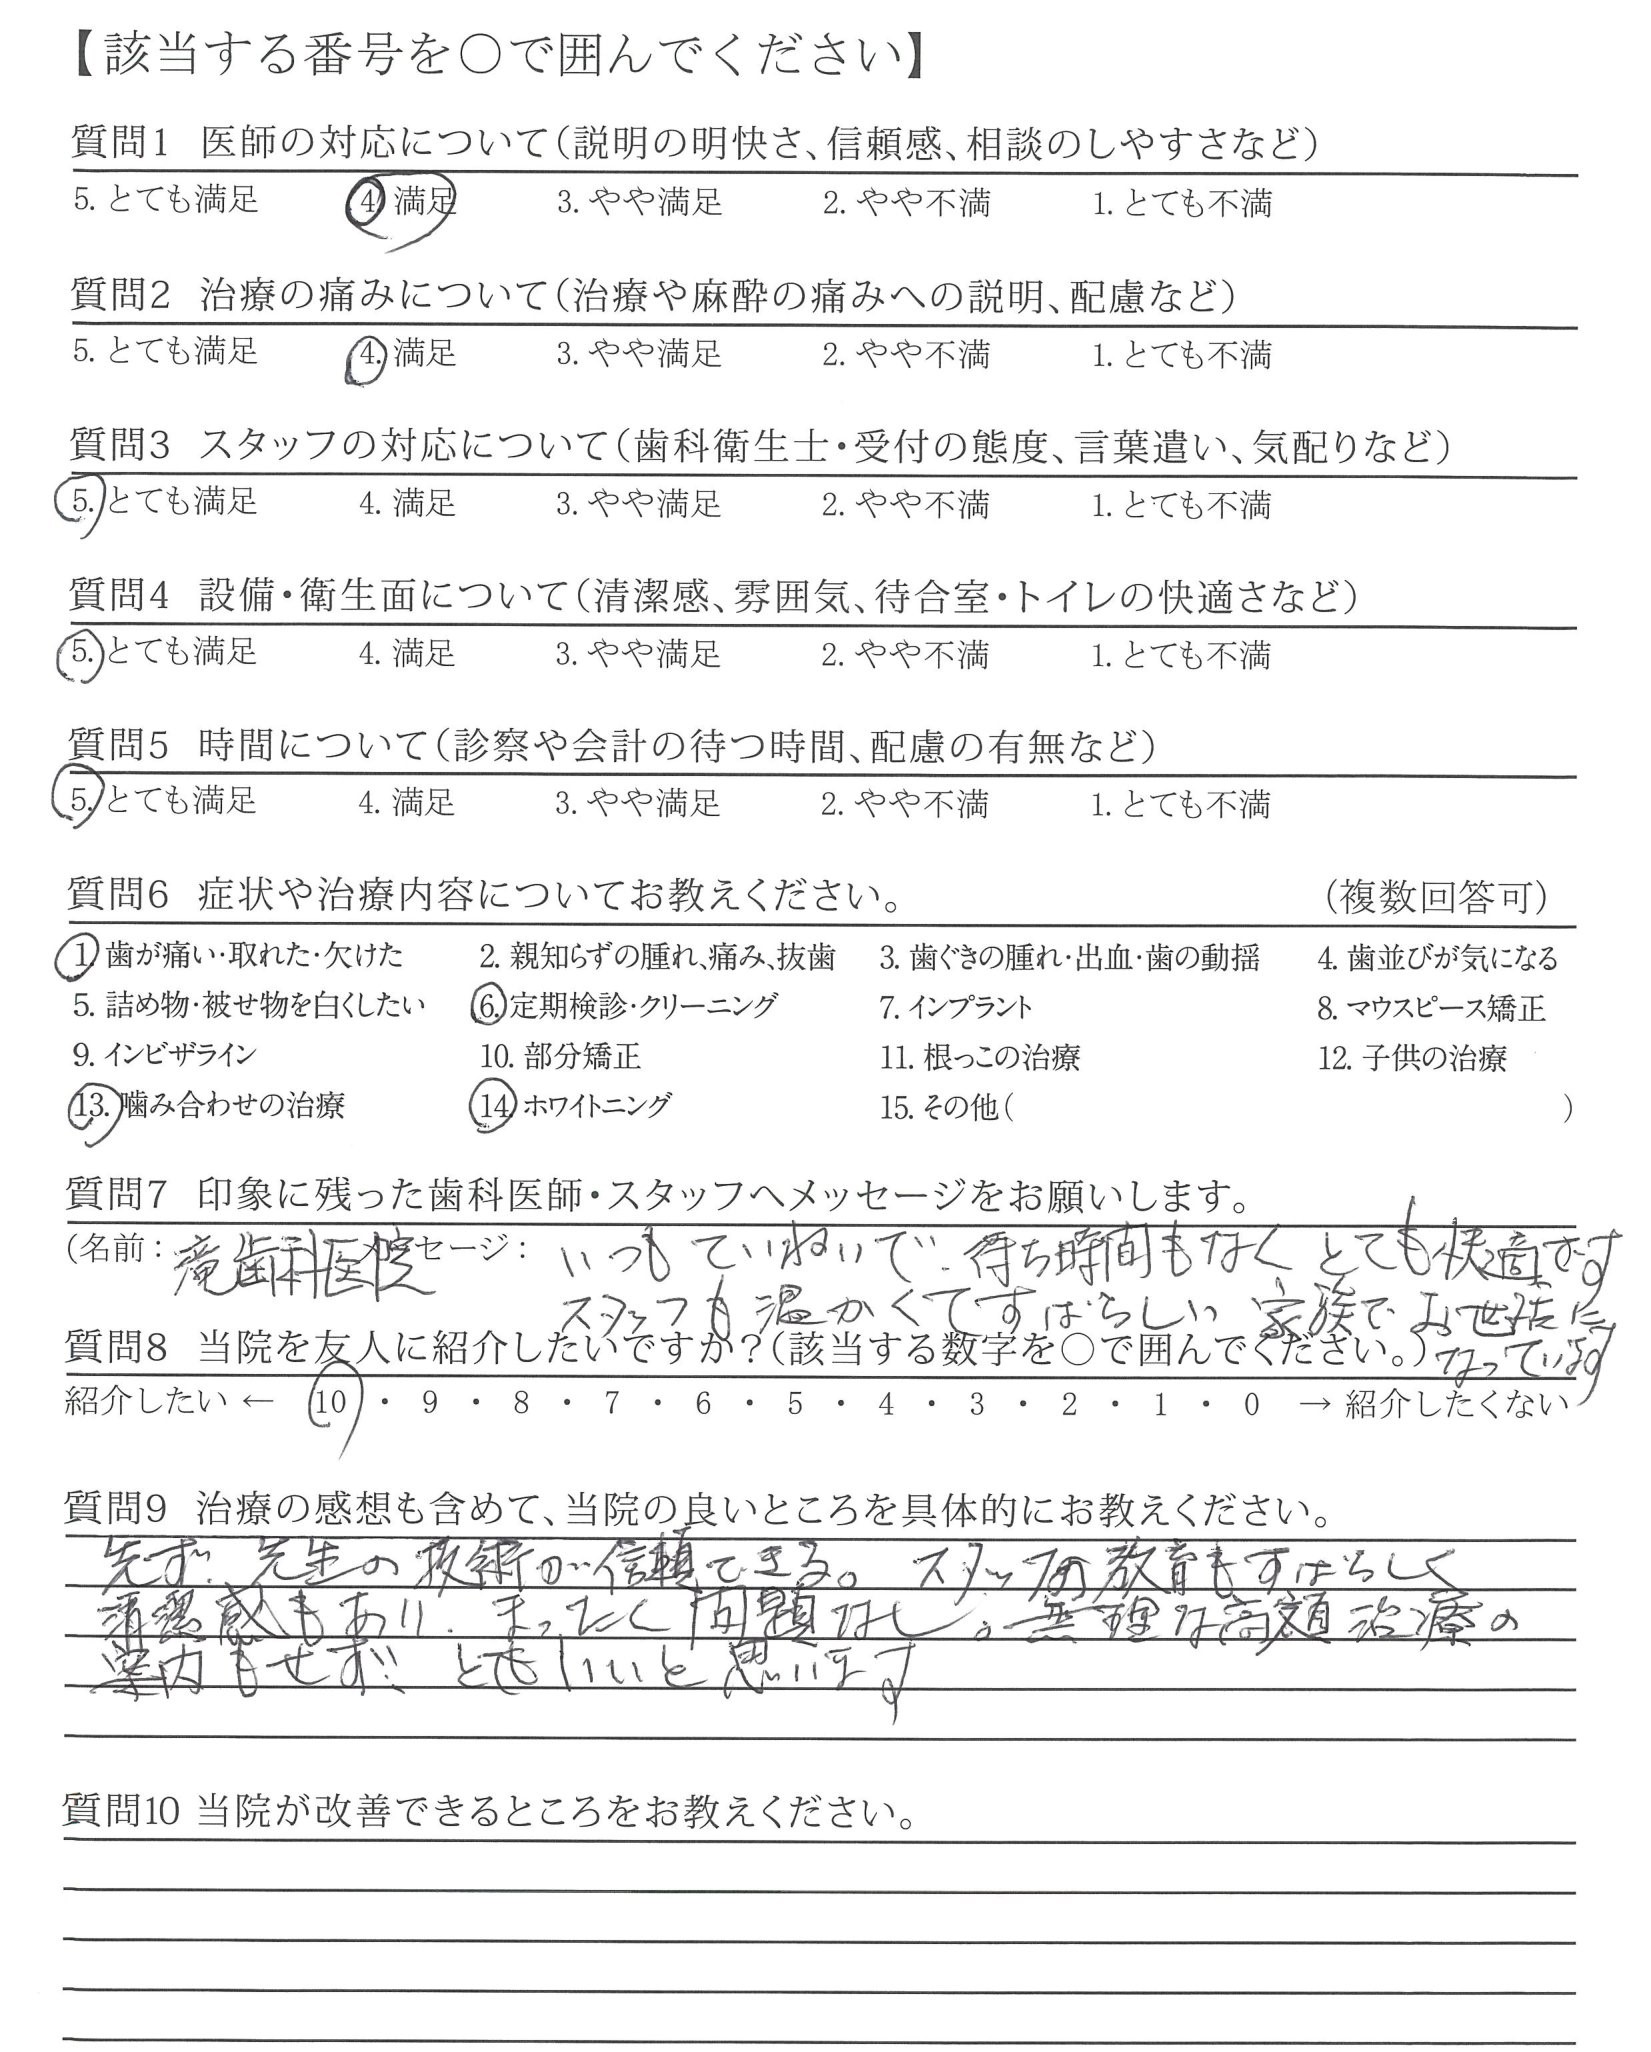 【該当する番号を○で囲んでください】
質問1 医師の対応について（説明の明快さ、信頼感、相談のしやすさなど）
5. とても満足 4. 満足 3. やや満足 2. やや不満 1. とても不満
質問2 治療の痛みについて（治療や麻酔の痛みへの説明、配慮など）
5. とても満足 4. 満足 3. やや満足 2. やや不満 1. とても不満
質問3 スタッフの対応について（歯科衛生士・受付の態度、言葉遣い、気配りなど）
5. とても満足 4. 満足 3. やや満足 2. やや不満 1. とても不満
質問4 設備・衛生面について（清潔感、雰囲気、待合室・トイレの快適さなど）
5. とても満足 4. 満足 3. やや満足 2. やや不満 1. とても不満
質問5 時間について（診察や会計の待つ時間、配慮の有無など）
5. とても満足 4. 満足 3. やや満足 2. やや不満 1. とても不満
質問6 症状や治療内容についてお教えください。 （複数回答可）
1. 歯が痛い・取れた・欠けた 2. 親知らずの腫れ、痛み、抜歯 3. 歯ぐきの腫れ・出血・歯の動揺 4. 歯並びが気になる
5. 詰め物・被せ物を白くしたい 6. 定期検診・クリーニング 7. インプラント 8. マウスピース矯正
9. インビザライン 10. 部分矯正 11. 根っこの治療 12. 子供の治療
13. 噛み合わせの治療 14. ホワイトニング 15. その他（ ）
質問7 印象に残った歯科医師・スタッフへメッセージをお願いします。
（名前： 滝歯科医院 メッセージ： いつもていねいで、待ち時間もなくとても快適です
スタッフも温かくてすばらしい 家族でお世話に
なっています
質問8 当院を友人に紹介したいですか？（該当する数字を○で囲んでください。）
紹介したい ← 10 ・ 9 ・ 8 ・ 7 ・ 6 ・ 5 ・ 4 ・ 3 ・ 2 ・ 1 ・ 0 → 紹介したくない
質問9 治療の感想も含めて、当院の良いところを具体的にお教えください。
先ず、先生の技術が信頼できる。 スタッフの教育もすばらしく
清潔感もあり、まったく問題なし。無理な高額治療の
案内もせず、とてもいいと思います
質問10 当院が改善できるところをお教えください。